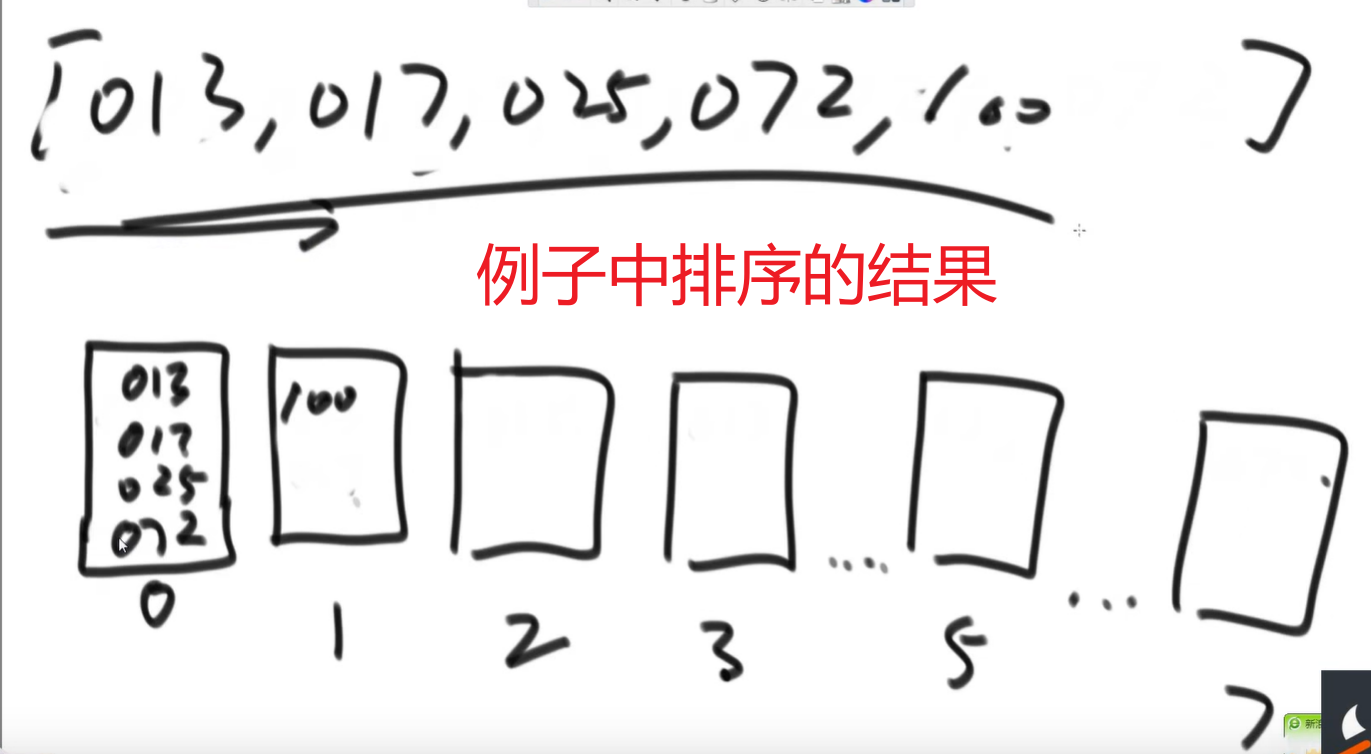 [013, 017, 025, 072, 100 ]
例子中排序的结果
013
017
025
072
100
.... ...
0 1 2 3 5 7